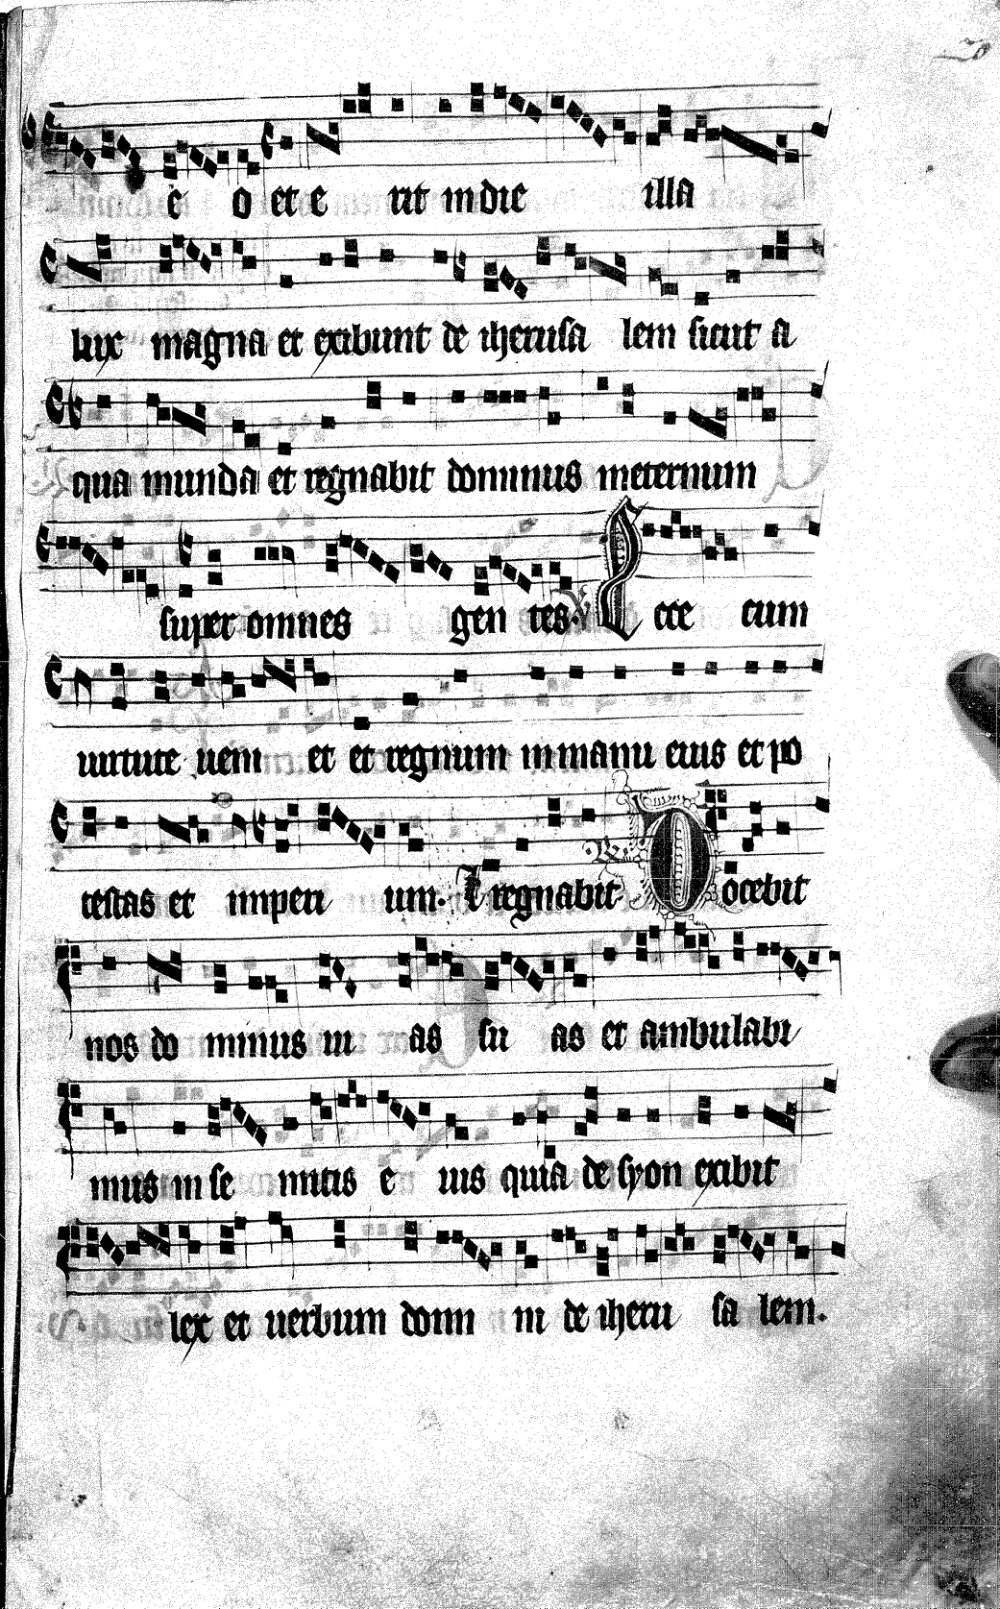 c o et e rit in die illa
lux magna et exibunt de iherusa lem sicut a
qua munda et regnabit dominus ineternum
super omnes gen tes. V Ecce cum
uirtute ueni et et regnum in manu eius et po
testas et imperi um. Et regnabit Docebit
nos do minus ui as su as et ambulabi
mus in se mitis e ius quia de syon exibit
lex et uerbum domi ni de iheru sa lem.